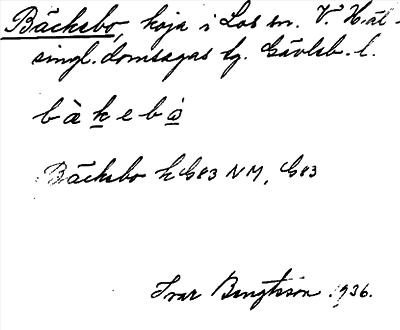 Bäcksbo, koja i Los sn. V. Häl-
singl. domsagas tg. Gävleb. l.
bàkebò
Bäcksbo k G83 NM, G83
Ivar Bengtsson 1936.